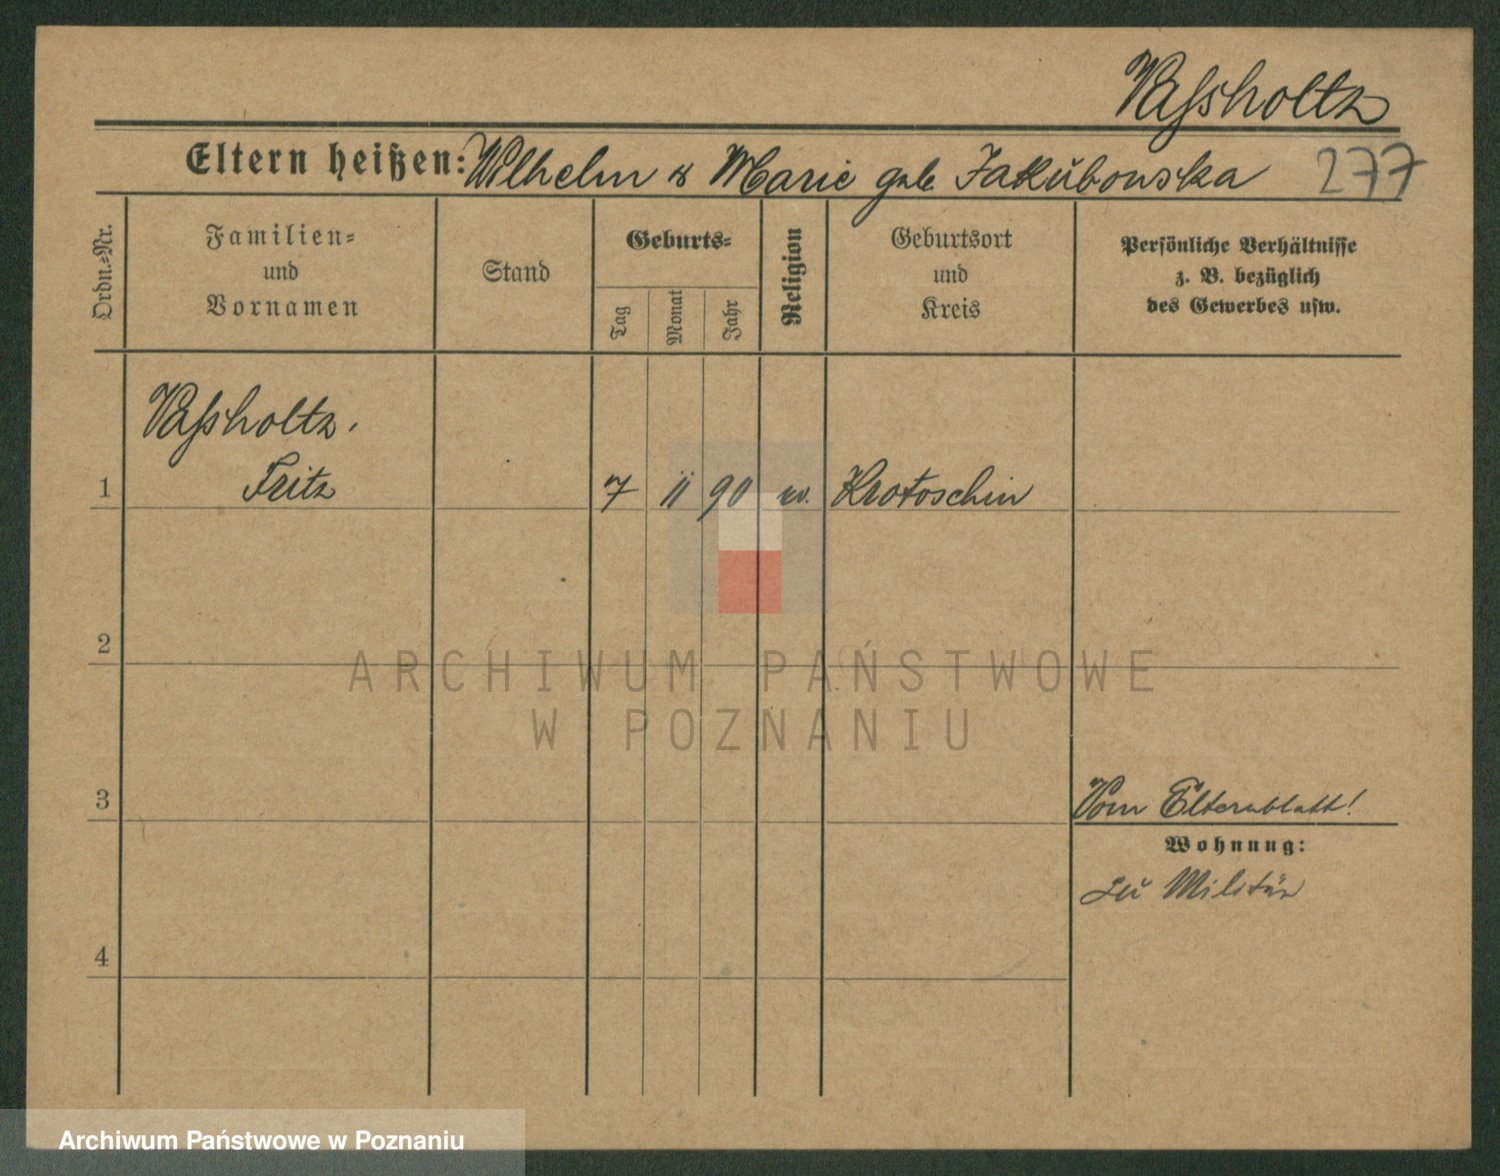 Vaßholtz
Eltern heißen: Wilhelm & Marie geb. Jakŭbowska 277
Ordn.=Nr.
Familien=
und
Vornamen
Stand
Geburts=
Tag
Monat
Jahr
Religion
Geburtsort
und
Kreis
Persönliche Verhältnisse
z. B. bezüglich
des Gewerbes usw.
Vaßholtz.
1 Fritz 7 11 90 ev. Krotoschin
2
3 Vom Elternblatt!
Wohnung:
zŭ Militär
4
ARCHIWUM PAŃSTWOWE
W POZNANIU
Archiwum Państwowe w Poznaniu